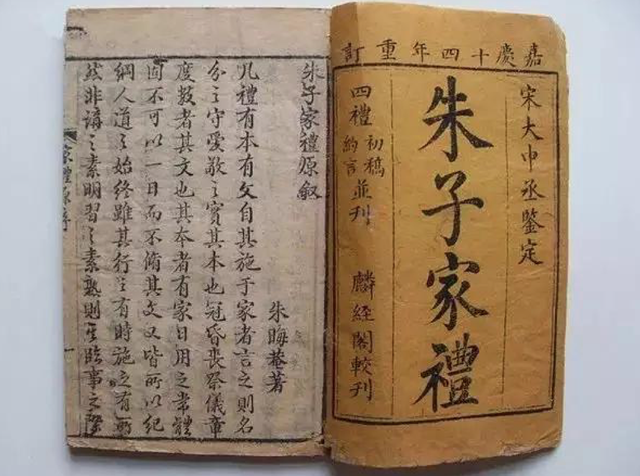 嘉慶十四年重訂
宋大中丞鑒定
朱子家禮
四禮初稿約言並刊 麟經閣較刊
朱子家禮原叙
朱晦菴著
凡禮有本有文自其施于家者言之則名
分之守愛敬之實其本也冠昏喪祭儀章
度數者其文也其本者有家日用之常體
固不可以一日而不脩其文又皆所以紀
綱人道之始終雖其行之有時施之有所
然非講之素明習之素熟則其臨事之際
家禮原序